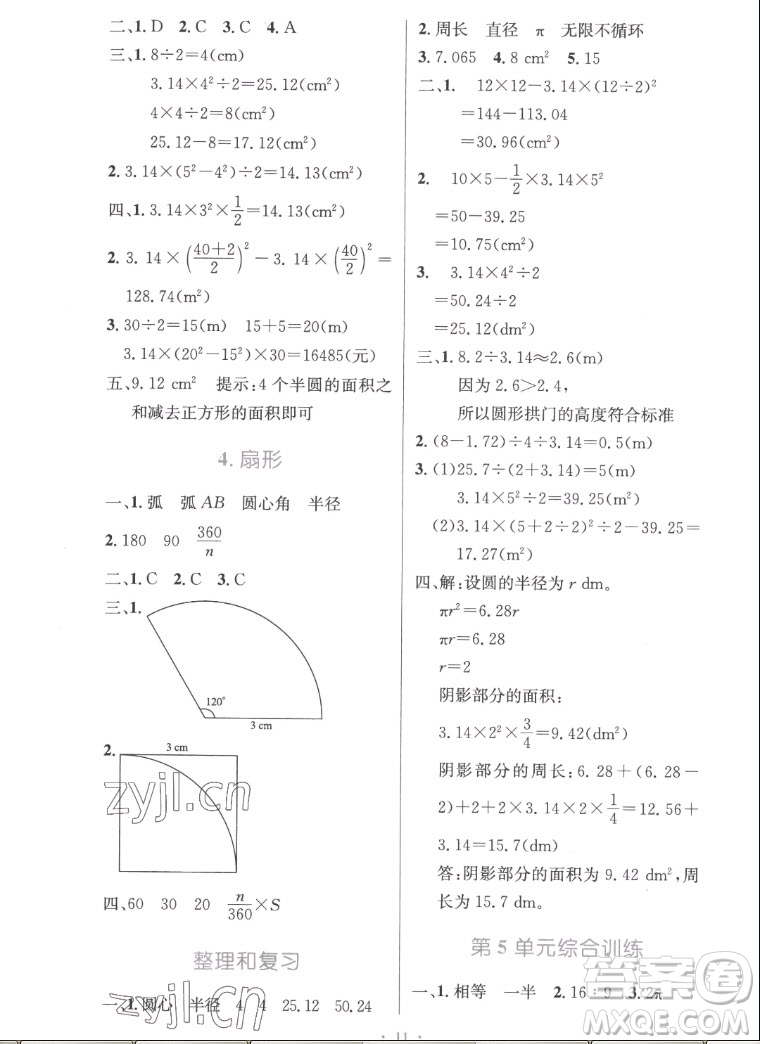 二、1. D　2. C　3. C　4. A
三、1. 8÷2=4(cm)
3.14×4²÷2=25.12(cm²)
4×4÷2=8(cm²)
25.12−8=17.12(cm²)
2. 3.14×(5²−4²)÷2=14.13(cm²)
四、1. 3.14×3²×1/2=14.13(m²)
2. 3.14×((40+2)/2)²−3.14×(40/2)²=
128.74(m²)
3. 30÷2=15(m)　15+5=20(m)
3.14×(20²−15²)×30=16485(元)
五、9.12 cm²　提示:4个半圆的面积之
和减去正方形的面积即可
4. 扇形
一、1. 弧　弧AB　圆心角　半径
2. 180　90　360/n
二、1. C　2. C　3. C
三、1.
120°
3 cm
2.
3 cm
zyjl.cn
四、60　30　20　n/360×S
整理和复习
一、1. 圆心　半径　4　4　25.12　50.24
zyjl.cn
2. 周长　直径　π　无限不循环
3. 7.065　4. 8 cm²　5. 15
二、1.　12×12−3.14×(12÷2)²
=144−113.04
=30.96(cm²)
2.　10×5−1/2×3.14×5²
=50−39.25
=10.75(cm²)
3.　3.14×4²÷2
=50.24÷2
=25.12(dm²)
三、1. 8.2÷3.14≈2.6(m)
因为2.6>2.4,
所以圆形拱门的高度符合标准
2. (8−1.72)÷4÷3.14=0.5(m)
3. (1)25.7÷(2+3.14)=5(m)
3.14×5²÷2=39.25(m²)
(2)3.14×(5+2÷2)²÷2−39.25=
17.27(m²)
四、解:设圆的半径为r dm。
πr²=6.28r
πr=6.28
r=2
阴影部分的面积:
3.14×2²×3/4=9.42(dm²)
阴影部分的周长:6.28+(6.28−
2)+2+2×3.14×2×1/4=12.56+
3.14=15.7(dm)
答:阴影部分的面积为9.42 dm²,周
长为15.7 dm。
第5单元综合训练
一、1. 相等　一半　2. 16:9　3. 2π
11
答案圈
MXQE.COM